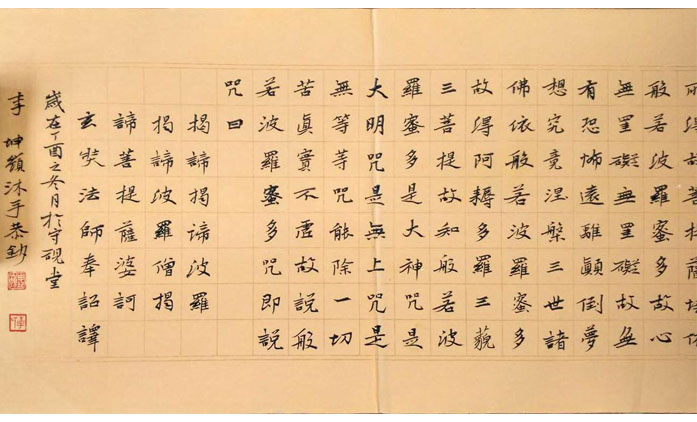 所得故菩提薩埵依
般若波羅蜜多故心
無罣礙無罣礙故無
有恐怖遠離顛倒夢
想究竟涅槃三世諸
佛依般若波羅蜜多
故得阿耨多羅三藐
三菩提故知般若波
羅蜜多是大神咒是
大明咒是無上咒是
無等等咒能除一切
苦真實不虛故說般
若波羅蜜多咒即說
咒曰
揭諦揭諦波羅
揭諦波羅僧揭
諦菩提薩婆訶
玄奘法師奉詔譯
歲在丁酉之冬月於守硯堂
李坤沐手恭鈔